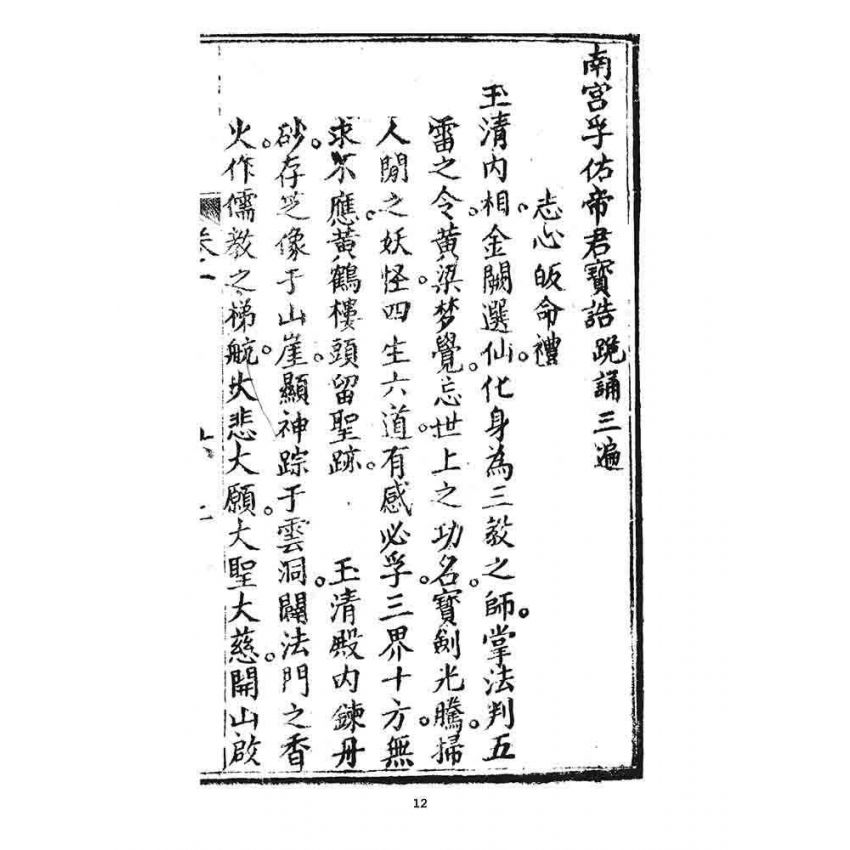 南宮孚佑帝君寶誥跪誦三遍
志心皈命禮。
玉清內相。金闕選仙。化身為三教之師。掌法判五
雷之令。黃梁梦覺。忘世上之功名。寶劍光騰。掃
人間之妖怪。四生六道。有感必孚。三界十方。無
求不應。黃鶴樓頭留聖跡。玉清殿內鍊丹
砂。存芝像于山崖。顯神踪于雲洞。闢法門之香
火。作儒教之梯航。大悲大願。大聖大慈。開山啟
12